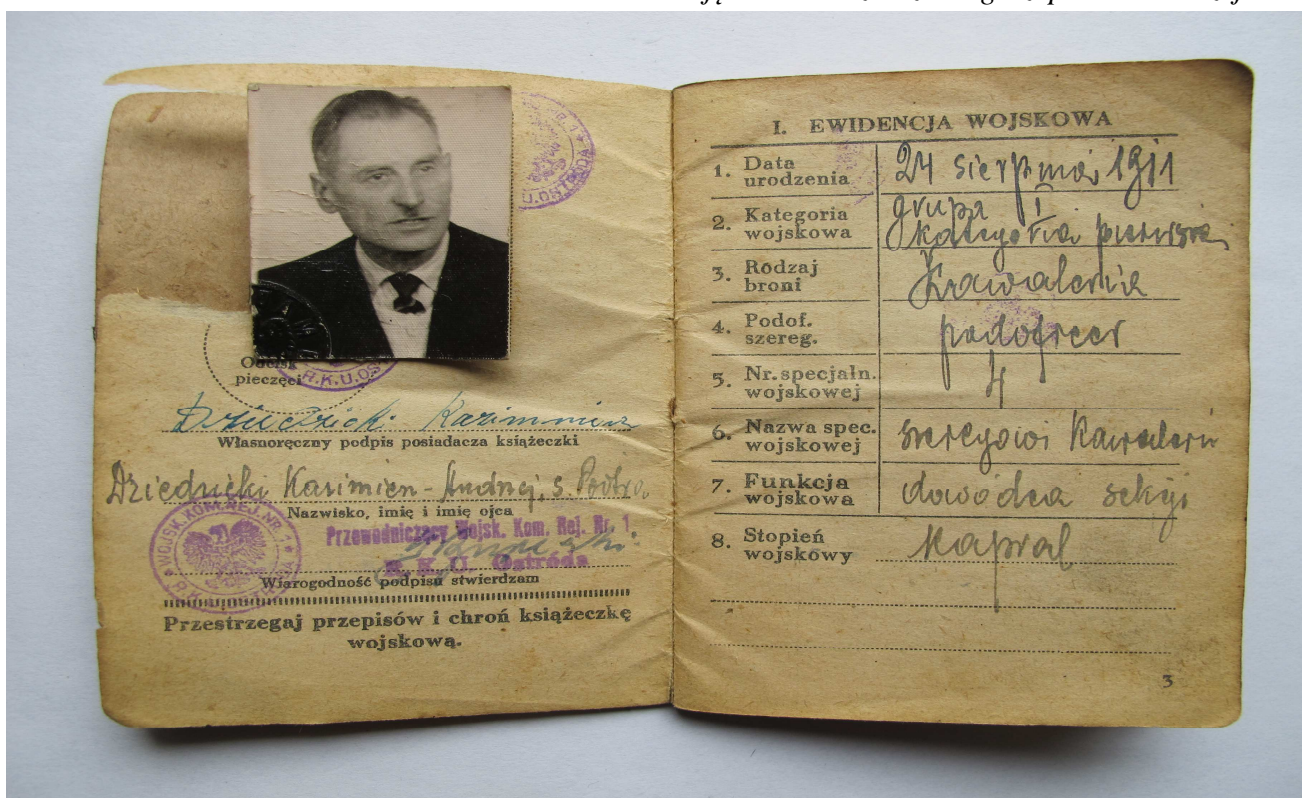 R.K.U.OS
U.OSTRÓDA
Odcisk
pieczęci
Dziedzicki Kazimierz
Własnoręczny podpis posiadacza książeczki
Dziedzicki Kazimierz-Andrzej, s. Piotra
Nazwisko, imię i imię ojca
WOJSK.KOM.REJ.NR.1
Przewodniczący Wojsk. Kom. Rej. Nr. 1.
R. K. U. Ostróda
Wiarogodność podpisu stwierdzam
Przestrzegaj przepisów i chroń książeczkę
wojskową.
I. EWIDENCJA WOJSKOWA
1. Data urodzenia 24 sierpnia 1911
2. Kategoria wojskowa grupa I kategoria pierwsza
3. Rodzaj broni Kawaleria
4. Podof. szereg. podoficer
5. Nr. specjaln. wojskowej 4
6. Nazwa spec. wojskowej szeregowi Kawalerii
7. Funkcja wojskowa dowódca sekcji
8. Stopień wojskowy Kapral
3